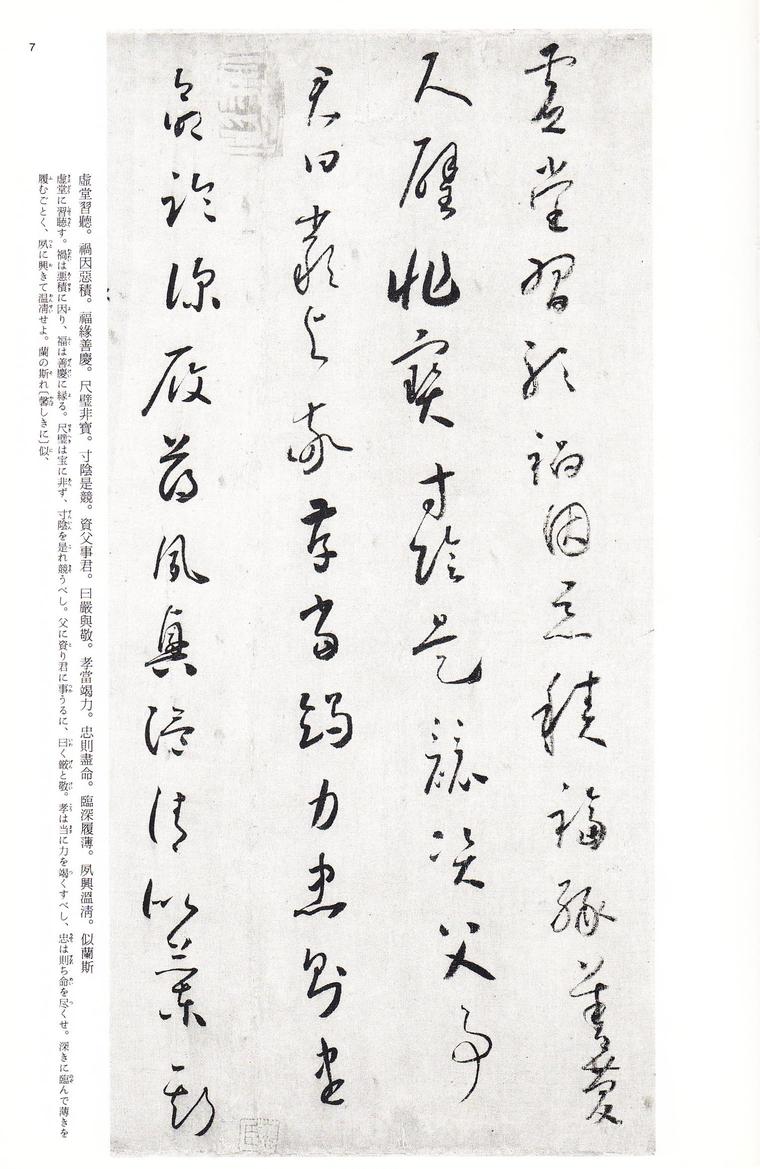 虚堂習聽禍因惡積福緣善慶
尺璧非寶寸陰是競資父事
君曰嚴與敬孝當竭力忠則盡
命臨深履薄夙興溫清似蘭斯
虚堂習聽。禍因惡積。福緣善慶。尺璧非寶。寸陰是競。資父事君。曰嚴與敬。孝當竭力。忠則盡命。臨深履薄。夙興溫凊。似蘭斯
虚堂に習聽す。禍は悪積に因り、福は善慶に縁る。尺璧は宝に非ず、寸陰を是れ競うべし。父に資り君に事うるに、曰く厳と敬。孝は当に力を竭くすべし、忠は則ち命を尽くせ。深きに臨んで薄きを
履むごとく、夙に興きて温凊せよ。蘭の斯れ〔馨しきに〕似、
7